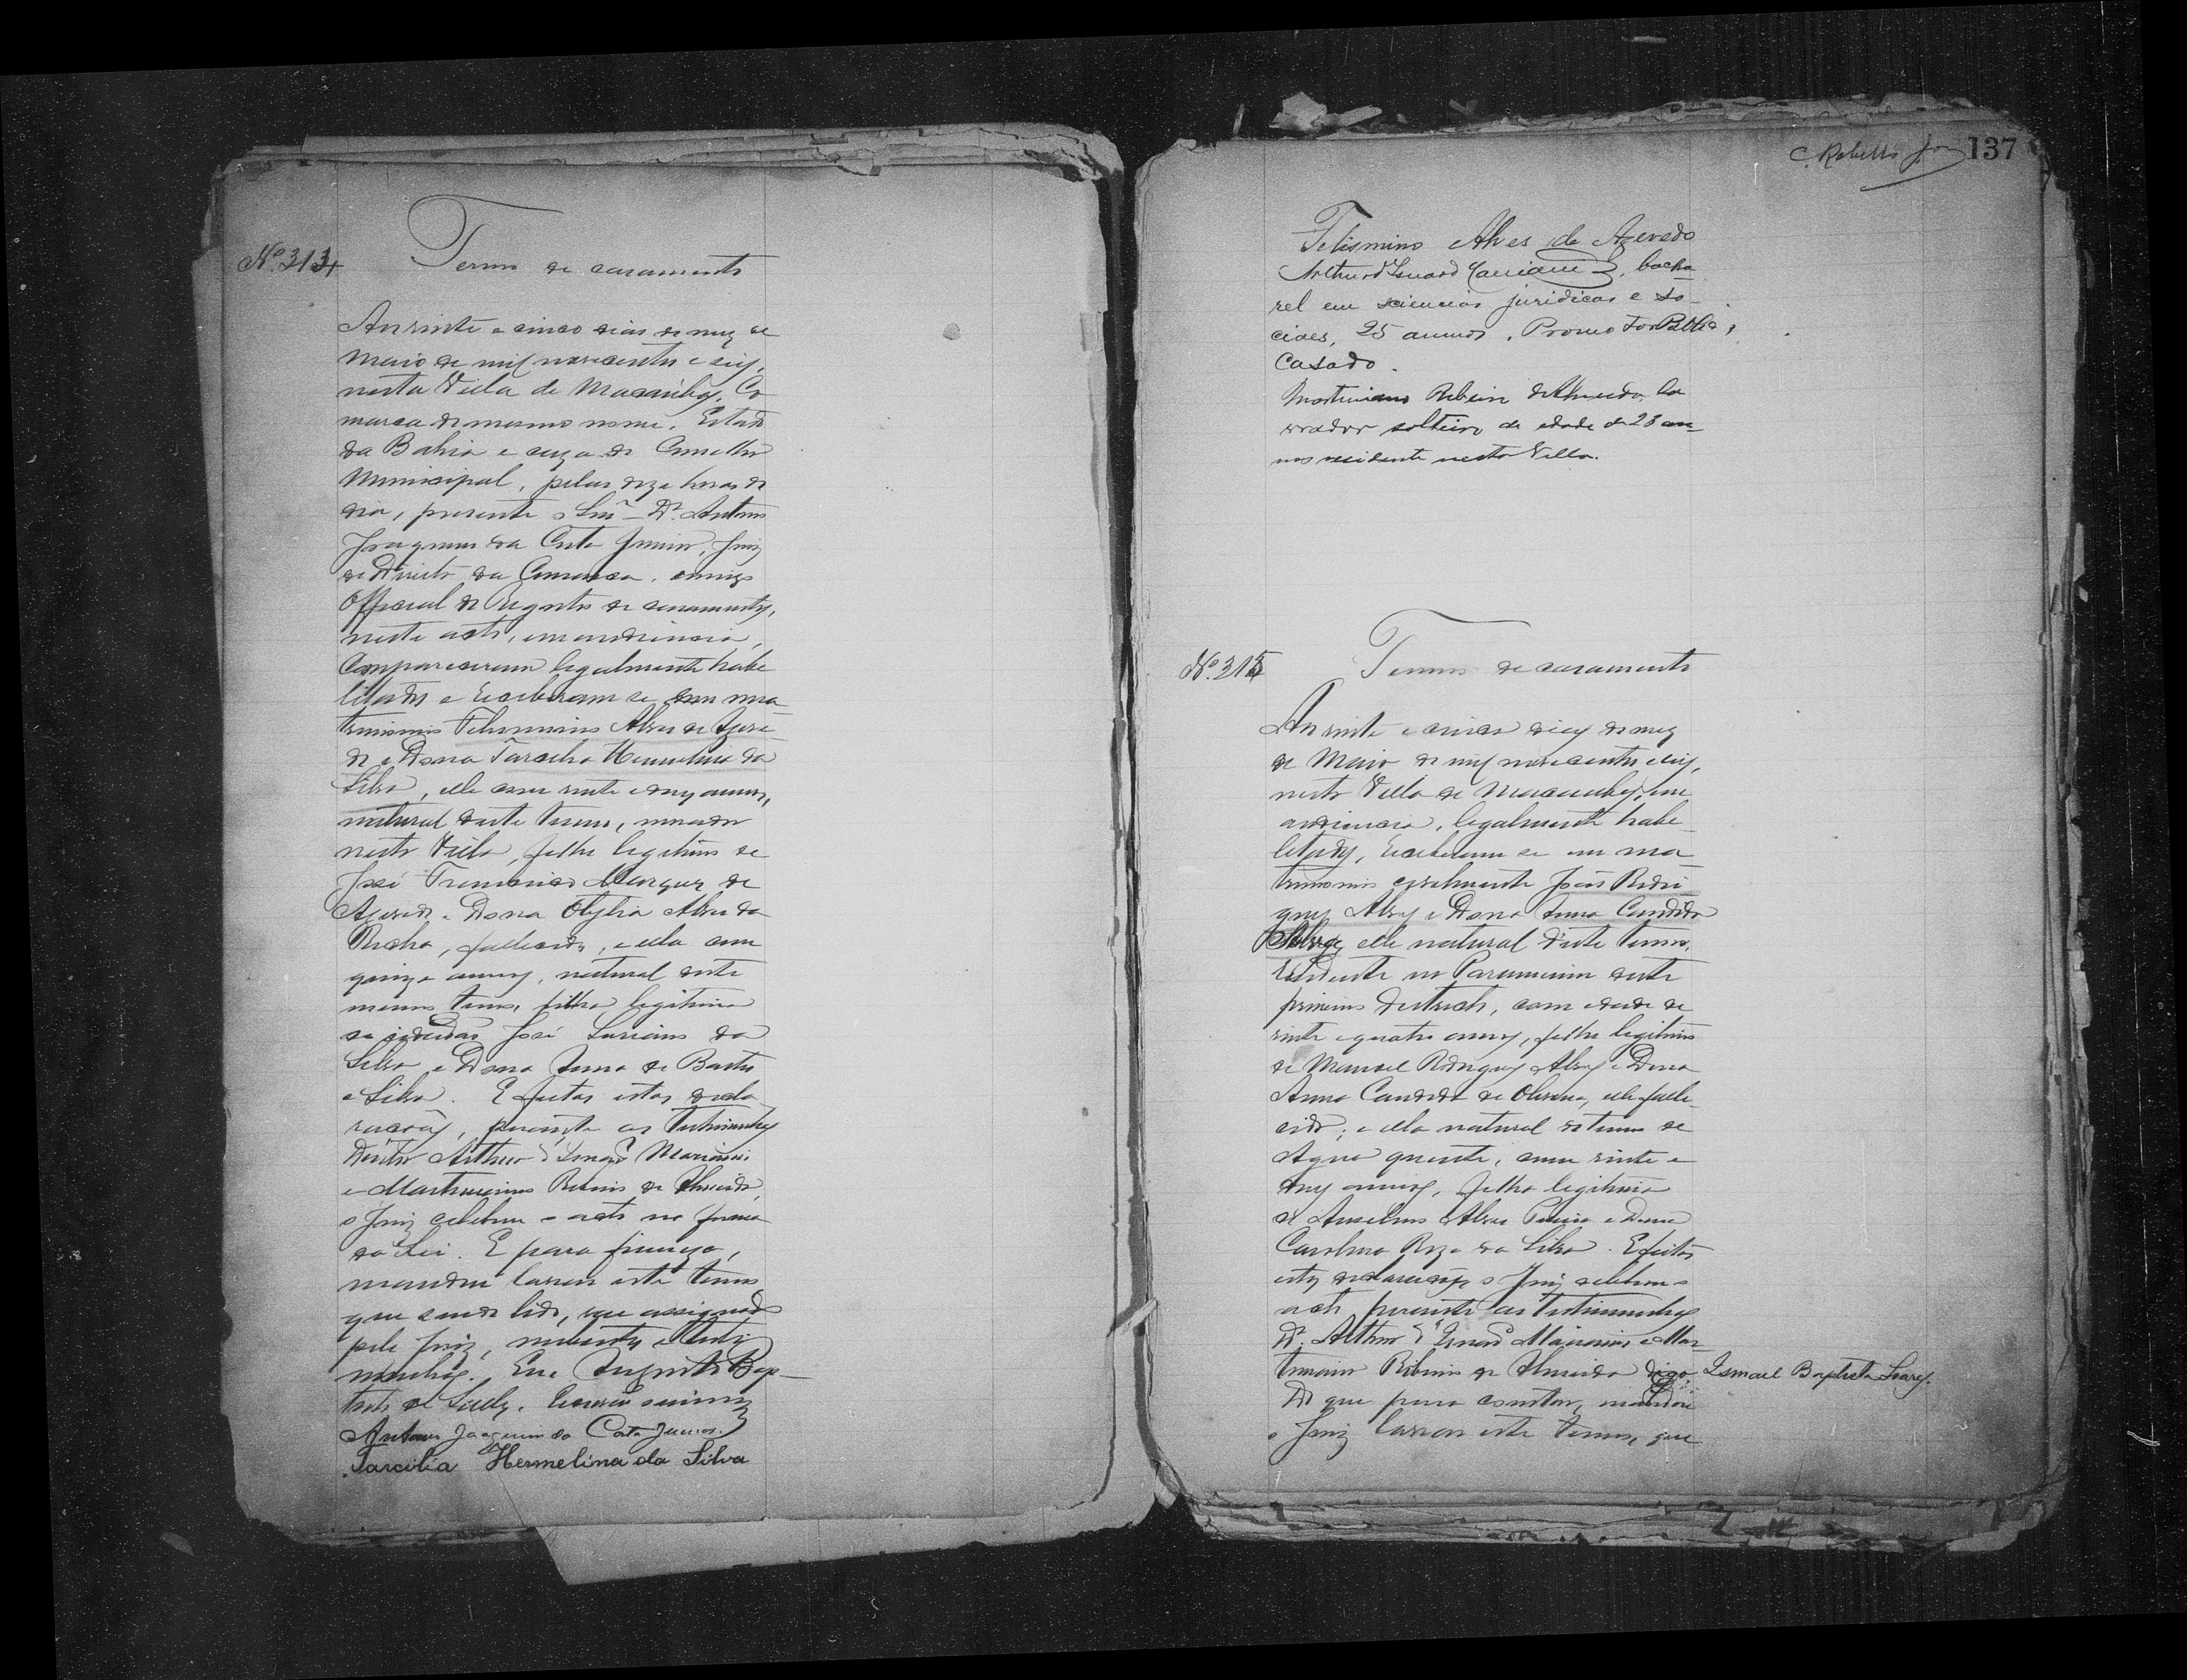 Nº 314
Termo de casamento
Aos vinte e cinco dias do mez de
Maio de mil novecentos e seis,
nesta Villa de Macaúbas, Co-
marca do mesmo nome, Estado
da Bahia e caza do Conselho
Municipal, pelas doze horas do
dia, presente o Snr. Dr. Antonio
Joaquim da Costa Junior, Juiz
de Direito da Comarca, comigo
Official do Registro de casamentos,
neste acto, em audiencia,
compareceram legalmente habe
litados e receberam-se em ma
trimonio Felismino Alves de Azeve
do e Dona Tarcilia Hermelina da
Silva, elle com vinte e annos,
natural deste termo, morador
nesta Villa, filho legitimo de
José Francisco Marques de
Azevedo e Dona Otylia Alves da
Rocha, fallecida, e ella com
quinze annos, natural deste
mesmo termo, filha legitima
do cidadão José Luciano da
Silva e Dona Anna de Bastos
e Silva. E feitas estas decla
rações, perante as testimunhas
Doutor Arthur d'Isnard Mariani
e Martiniano Ribeiro de Almeida,
o Juiz celebrou o acto na forma
da Lei. E para firmeza,
mandou lavrar este termo
que sendo lido, vae assignado
pelo Juiz, nubentes e testi
munhas. Eu Augusto Bap-
tista de escrivão
Antonio Joaquim da Costa Junior.
Tarcilia Hermelina da Silva
C. Rebello Jor 137
Felismino Alves de Azevedo
Arthur d'Isnard Mariani, bacha
rel em sciencias juridicas e so-
ciaes, 25 annos, Promotor Publico,
Casado.
Martiniano Ribeiro de Almeida, la
vrador solteiro de edade de 28 an-
nos residente nesta Villa.
Nº 315
Termo de casamento
Aos vinte e cinco dias do mez
de Maio de mil novecentos e seis,
nesta Villa de Macaubas, em
audiencia, legalmente habe
litados, receberam-se em ma
trimonio civilmente João Rodri
gues Alves e Dona Anna Candida
elle natural d'este termo,
residente no Paramirim deste
primeiro districto, com edade de
vinte e quatro annos, filho legitimo
de Manoel Rodrigues Alves e Dona
Anna Candida de Oliveira, elle falle
cido; e ella natural do termo de
Agua quente, com vinte e
annos, filha legitima
de Anselmo Alves Pereira e Dona
Carolina Roza da Silva. E feitas
estas declarações o Juiz celebrou o
acto perante as testimunhas
Dr. Arthur d'Isnard Mariani e Mar
tiniano Ribeiro de Almeida digo Ismael Baptista Soares.
Do que para constar, mandou
o Juiz lavrar este termo, que